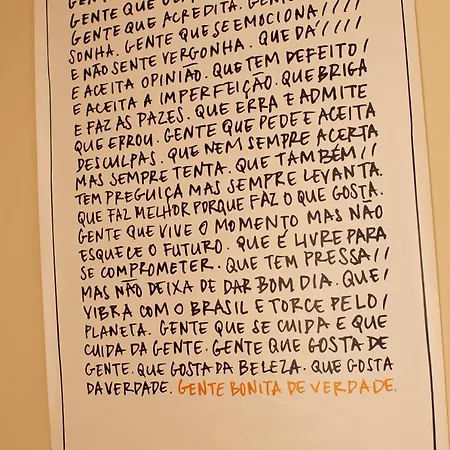 GENTE QUE
GENTE QUE ACREDITA. GENTE
SONHA. GENTE QUE SE EMOCIONA////
E NÃO SENTE VERGONHA. QUE DÁ////
E ACEITA OPINIÃO. QUE TEM DEFEITO/
E ACEITA A IMPERFEIÇÃO. QUE BRIGA
E FAZ AS PAZES. QUE ERRA E ADMITE
QUE ERROU. GENTE QUE PEDE E ACEITA
DESCULPAS. QUE NEM SEMPRE ACERTA
MAS SEMPRE TENTA. QUE TAMBÉM//
TEM PREGUIÇA MAS SEMPRE LEVANTA.
QUE FAZ MELHOR PORQUE FAZ O QUE GOSTA.
GENTE QUE VIVE O MOMENTO MAS NÃO
ESQUECE O FUTURO. QUE É LIVRE PARA
SE COMPROMETER. QUE TEM PRESSA//
MAS NÃO DEIXA DE DAR BOM DIA. QUE/
VIBRA COM O BRASIL E TORCE PELO/
PLANETA. GENTE QUE SE CUIDA E QUE
CUIDA DA GENTE. GENTE QUE GOSTA DE
GENTE. QUE GOSTA DA BELEZA. QUE GOSTA
DA VERDADE. GENTE BONITA DE VERDADE.